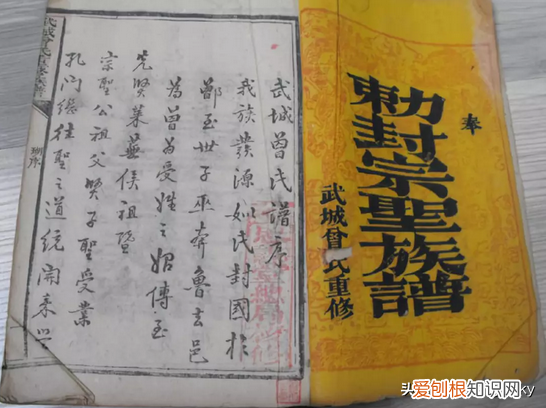 奉
勅封宗聖族譜
武城曾氏重修
武城曾氏譜序
我族發源姒氏封國於
鄫至世子巫奔魯去邑
為曾曾受姓之始傳至
先賢萊蕪侯祖暨
宗聖公祖父賢子聖受業
孔門繼往聖之道統開来學
武城曾氏重修族譜
头条
爱刨根知识网
ky